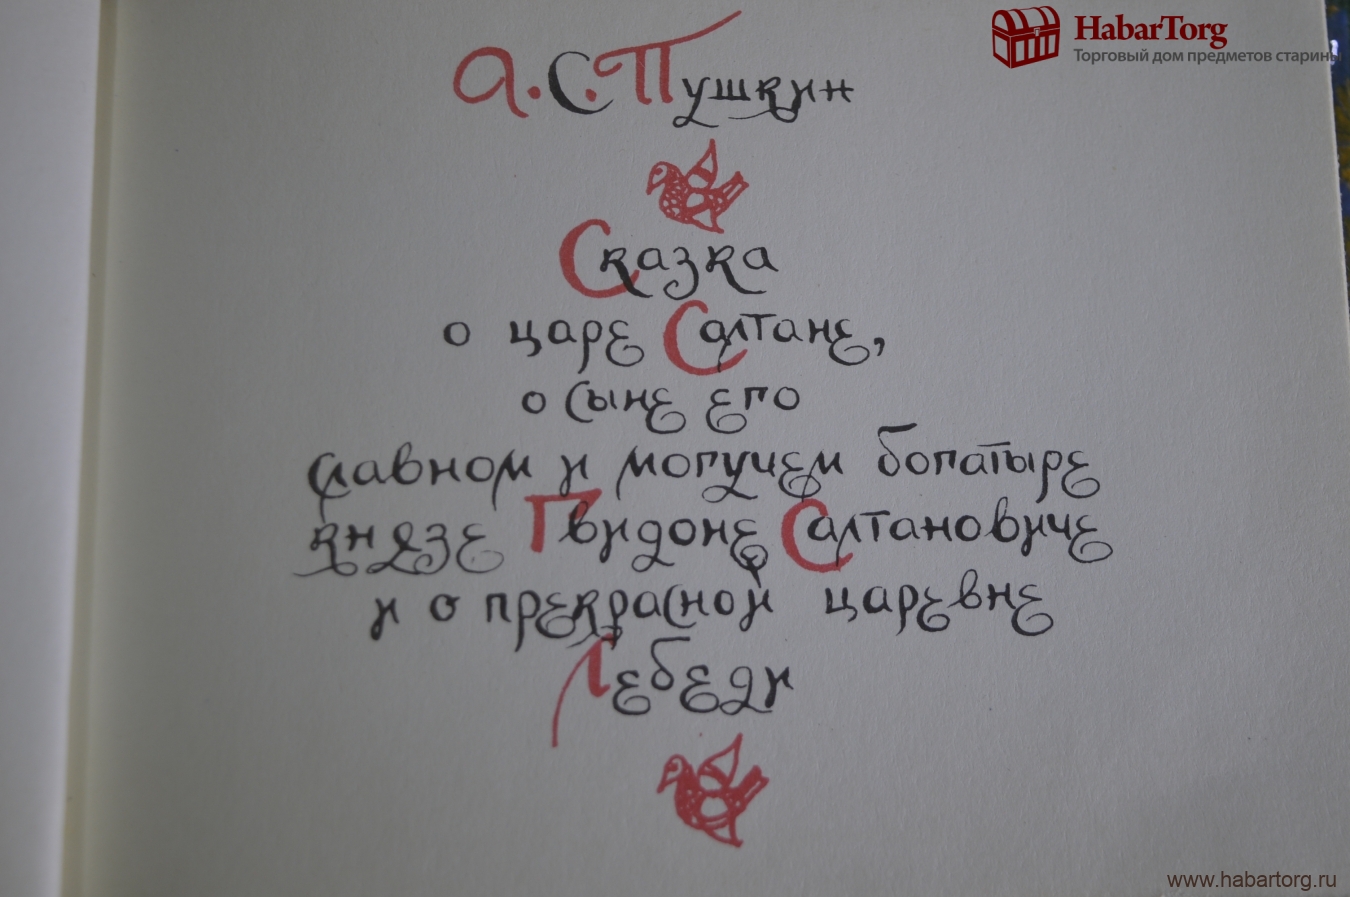 HabarTorg
Торговый дом предметов старины
А. С. Пушкин
Сказка
о царе Салтане,
о сыне его
славном и могучем богатыре
князе Гвидоне Салтановиче
и о прекрасной царевне
Лебеди
www.habartorg.ru